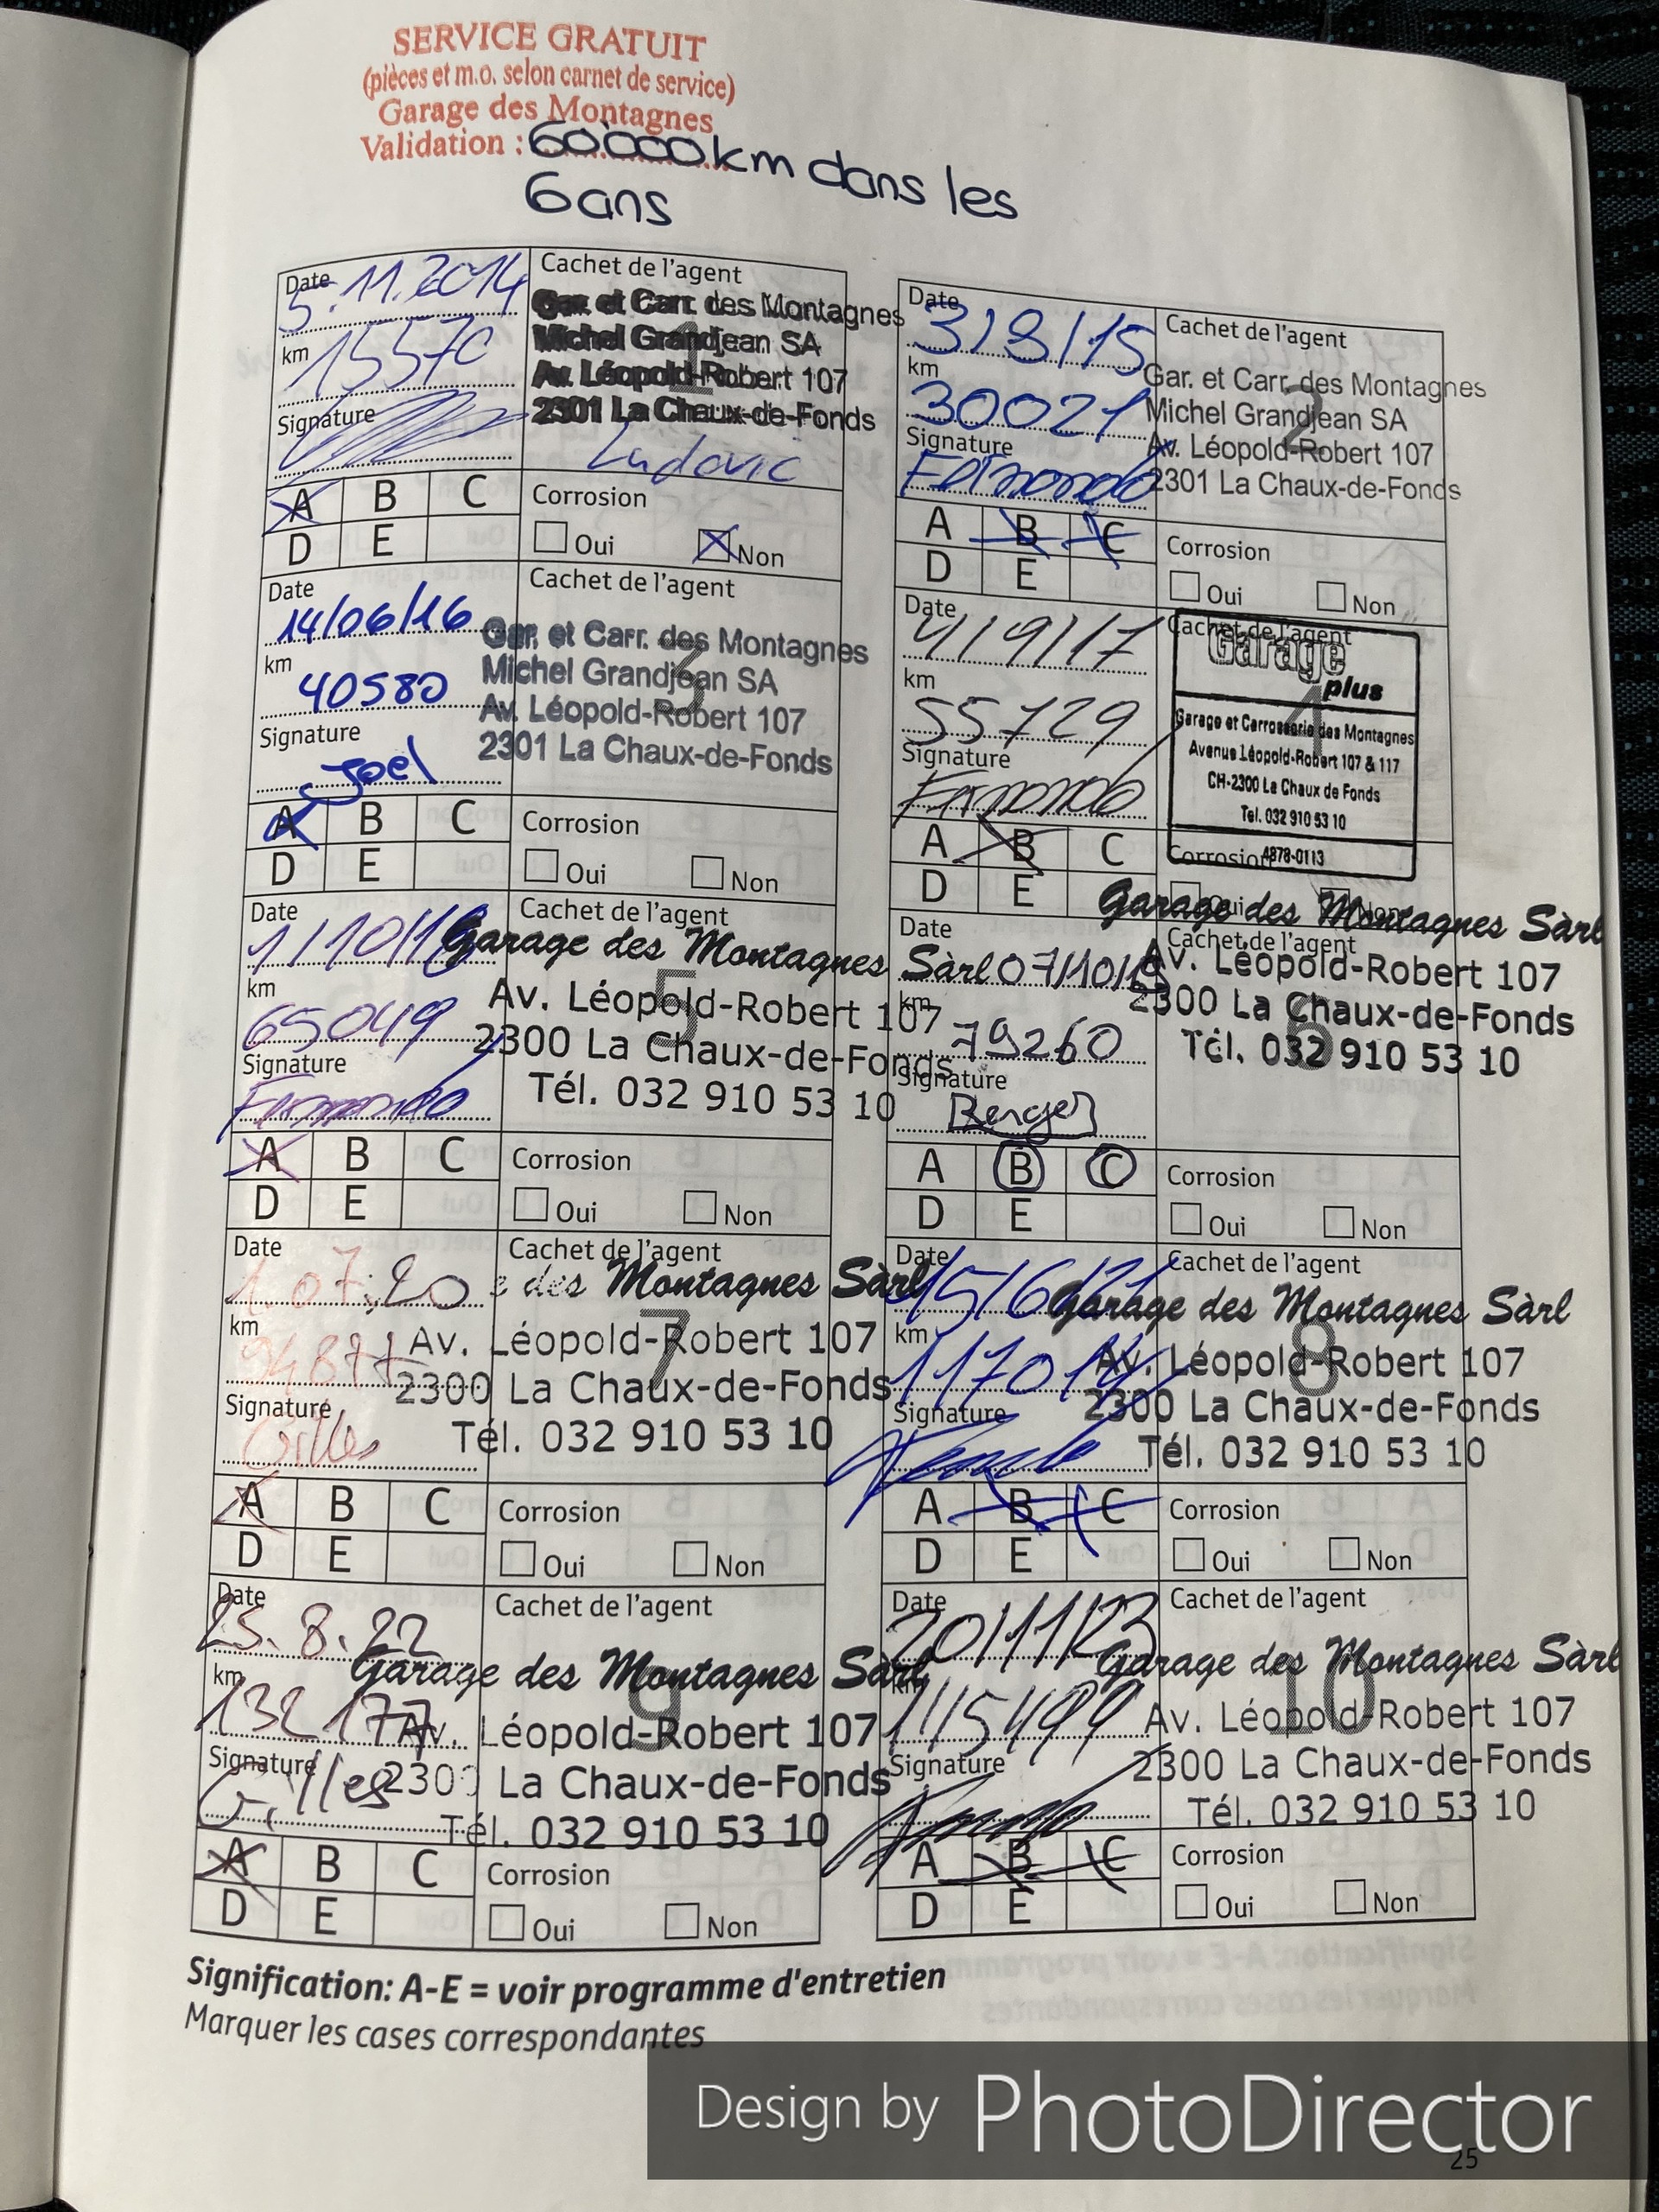 SERVICE GRATUIT
(pièces et m.o. selon carnet de service)
Garage des Montagnes
Validation : 60'000 km dans les
6 ans
Date 5.11.2014
km 15570
Signature
Cachet de l'agent
Gar. et Carr. des Montagnes
Michel Grandjean SA
Av. Léopold-Robert 107
2301 La Chaux-de-Fonds
Ludovic
1
A B C
D E
Corrosion
Oui Non
Date 3/8/15
km 30021
Signature
Cachet de l'agent
Gar. et Carr. des Montagnes
Michel Grandjean SA
Av. Léopold-Robert 107
2301 La Chaux-de-Fonds
2
A B C
D E
Corrosion
Oui Non
Date 14/06/16
km 40580
Signature Joel
Cachet de l'agent
Gar. et Carr. des Montagnes
Michel Grandjean SA
Av. Léopold-Robert 107
2301 La Chaux-de-Fonds
3
A B C
D E
Corrosion
Oui Non
Date 4/9/17
km 55729
Signature
Cachet de l'agent
Garage
plus
Garage et Carrosserie des Montagnes
Avenue Léopold-Robert 107 & 117
CH-2300 La Chaux de Fonds
Tel. 032 910 53 10
4878-0113
4
A B C
D E
Corrosion
Oui Non
Date 1/10/18
km 65049
Signature
Cachet de l'agent
Garage des Montagnes Sàrl
Av. Léopold-Robert 107
2300 La Chaux-de-Fonds
Tél. 032 910 53 10
5
A B C
D E
Corrosion
Oui Non
Date 07/10/19
km 79260
Signature Berger
Cachet de l'agent
Garage des Montagnes Sàrl
Av. Léopold-Robert 107
2300 La Chaux-de-Fonds
Tél. 032 910 53 10
6
A B C
D E
Corrosion
Oui Non
Date 1.07.20
km 94877
Signature Gilles
Cachet de l'agent
e des Montagnes Sàrl
Av. Léopold-Robert 107
2300 La Chaux-de-Fonds
Tél. 032 910 53 10
7
A B C
D E
Corrosion
Oui Non
Date 15/6/21
km 117014
Signature
Cachet de l'agent
Garage des Montagnes Sàrl
Av. Léopold-Robert 107
2300 La Chaux-de-Fonds
Tél. 032 910 53 10
8
A B C
D E
Corrosion
Oui Non
Date 25.8.22
km 132177
Signature Gilles
Cachet de l'agent
Garage des Montagnes Sàrl
Av. Léopold-Robert 107
2300 La Chaux-de-Fonds
Tél. 032 910 53 10
9
A B C
D E
Corrosion
Oui Non
Date 20/11/23
km 145499
Signature
Cachet de l'agent
Garage des Montagnes Sàrl
Av. Léopold-Robert 107
2300 La Chaux-de-Fonds
Tél. 032 910 53 10
10
A B C
D E
Corrosion
Oui Non
Signification: A-E = voir programme d'entretien
Marquer les cases correspondantes
Design by PhotoDirector
25